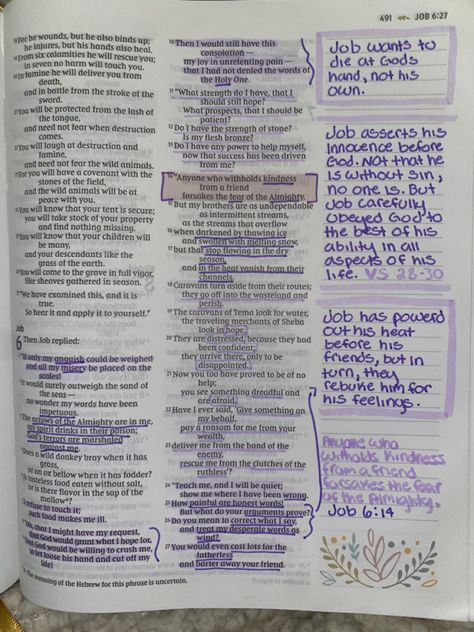 491 JOB 6:27
18 For he wounds, but he also binds up;
he injures, but his hands also heal.
19 From six calamities he will rescue you;
in seven no harm will touch you.
20 In famine he will deliver you from
death,
and in battle from the stroke of the
sword.
21 You will be protected from the lash of
the tongue,
and need not fear when destruction
comes.
22 You will laugh at destruction and
famine,
and need not fear the wild animals.
23 For you will have a covenant with the
stones of the field,
and the wild animals will be at
peace with you.
24 You will know that your tent is secure;
you will take stock of your property
and find nothing missing.
25 You will know that your children will
be many,
and your descendants like the
grass of the earth.
26 You will come to the grave in full vigor,
like sheaves gathered in season.
27 "We have examined this, and it is
true.
So hear it and apply it to yourself."
Job
6 Then Job replied:
2 "If only my anguish could be weighed
and all my misery be placed on the
scales!
3 It would surely outweigh the sand of
the seas —
no wonder my words have been
impetuous.
4 The arrows of the Almighty are in me,
my spirit drinks in their poison;
God's terrors are marshaled
against me.
5 Does a wild donkey bray when it has
grass,
or an ox bellow when it has fodder?
6 Is tasteless food eaten without salt,
or is there flavor in the sap of the
mallow?
7 I refuse to touch it;
such food makes me ill.
8 "Oh, that I might have my request,
that God would grant what I hope for,
9 that God would be willing to crush me,
to let loose his hand and cut off my
life!
10 Then I would still have this
consolation —
my joy in unrelenting pain —
that I had not denied the words of
the Holy One.
11 "What strength do I have, that I
should still hope?
What prospects, that I should be
patient?
12 Do I have the strength of stone?
Is my flesh bronze?
13 Do I have any power to help myself,
now that success has been driven
from me?
14 "Anyone who withholds kindness
from a friend
forsakes the fear of the Almighty.
15 But my brothers are as undependable
as intermittent streams,
as the streams that overflow
16 when darkened by thawing ice
and swollen with melting snow,
17 but that stop flowing in the dry
season,
and in the heat vanish from their
channels.
18 Caravans turn aside from their routes;
they go off into the wasteland and
perish.
19 The caravans of Tema look for water,
the traveling merchants of Sheba
look in hope.
20 They are distressed, because they had
been confident;
they arrive there, only to be
disappointed.
21 Now you too have proved to be of no
help;
you see something dreadful and
are afraid.
22 Have I ever said, 'Give something on
my behalf,
pay a ransom for me from your
wealth,
23 deliver me from the hand of the
enemy,
rescue me from the clutches of the
ruthless'?
24 "Teach me, and I will be quiet;
show me where I have been wrong.
25 How painful are honest words!
But what do your arguments prove?
26 Do you mean to correct what I say,
and treat my desperate words as
wind?
27 You would even cast lots for the
fatherless
and barter away your friend.
The meaning of the Hebrew for this phrase is uncertain.
Job wants to
die at Gods
hand, not his
own.
Job asserts his
innocence before
God. Not that he
is without sin,
no one is. But
Job carefully
obeyed God to
the best of his
ability in all
aspects of his
life. VS 28-30
Job has powerd
out his heat
before his
friends, but in
turn, they
rebuke him for
his feelings.
Anyone who
witholds kindness
from a friend
forsakes the fear
of the Almighty.
Job 6:14